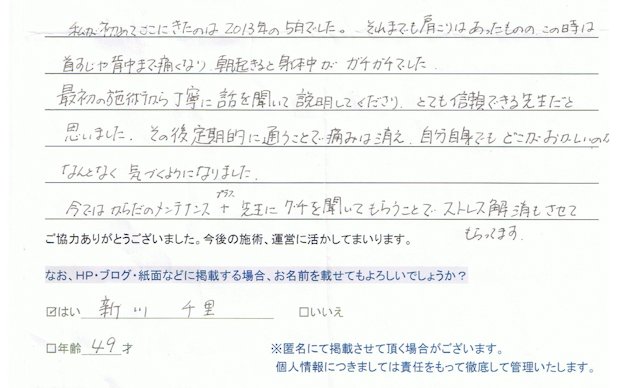 私が初めてここにきたのは2013年の5月でした。それまでも肩こりはあったものの この時は
首すじや背中まで痛くなり 朝起きると身体中が ガチガチでした
最初の施術から丁寧に話を聞いて説明してくださり、とても信頼できる先生だと
思いました。その後定期的に通うことで痛みは消え、自分自身でも どこがおかしいのか
なんとなく 気づくようになりました。
今では からだのメンテナンス +プラス 先生に グチを聞いてもらうことで ストレス解消もさせて
もらってます。
ご協力ありがとうございました。今後の施術、運営に活かしてまいります。
なお、HP・ブログ・紙面などに掲載する場合、お名前を載せてもよろしいでしょうか？
☑はい 新川 千里 □いいえ
□年齢 49才
※匿名にて掲載させて頂く場合がございます。
個人情報につきましては責任をもって徹底して管理いたします。